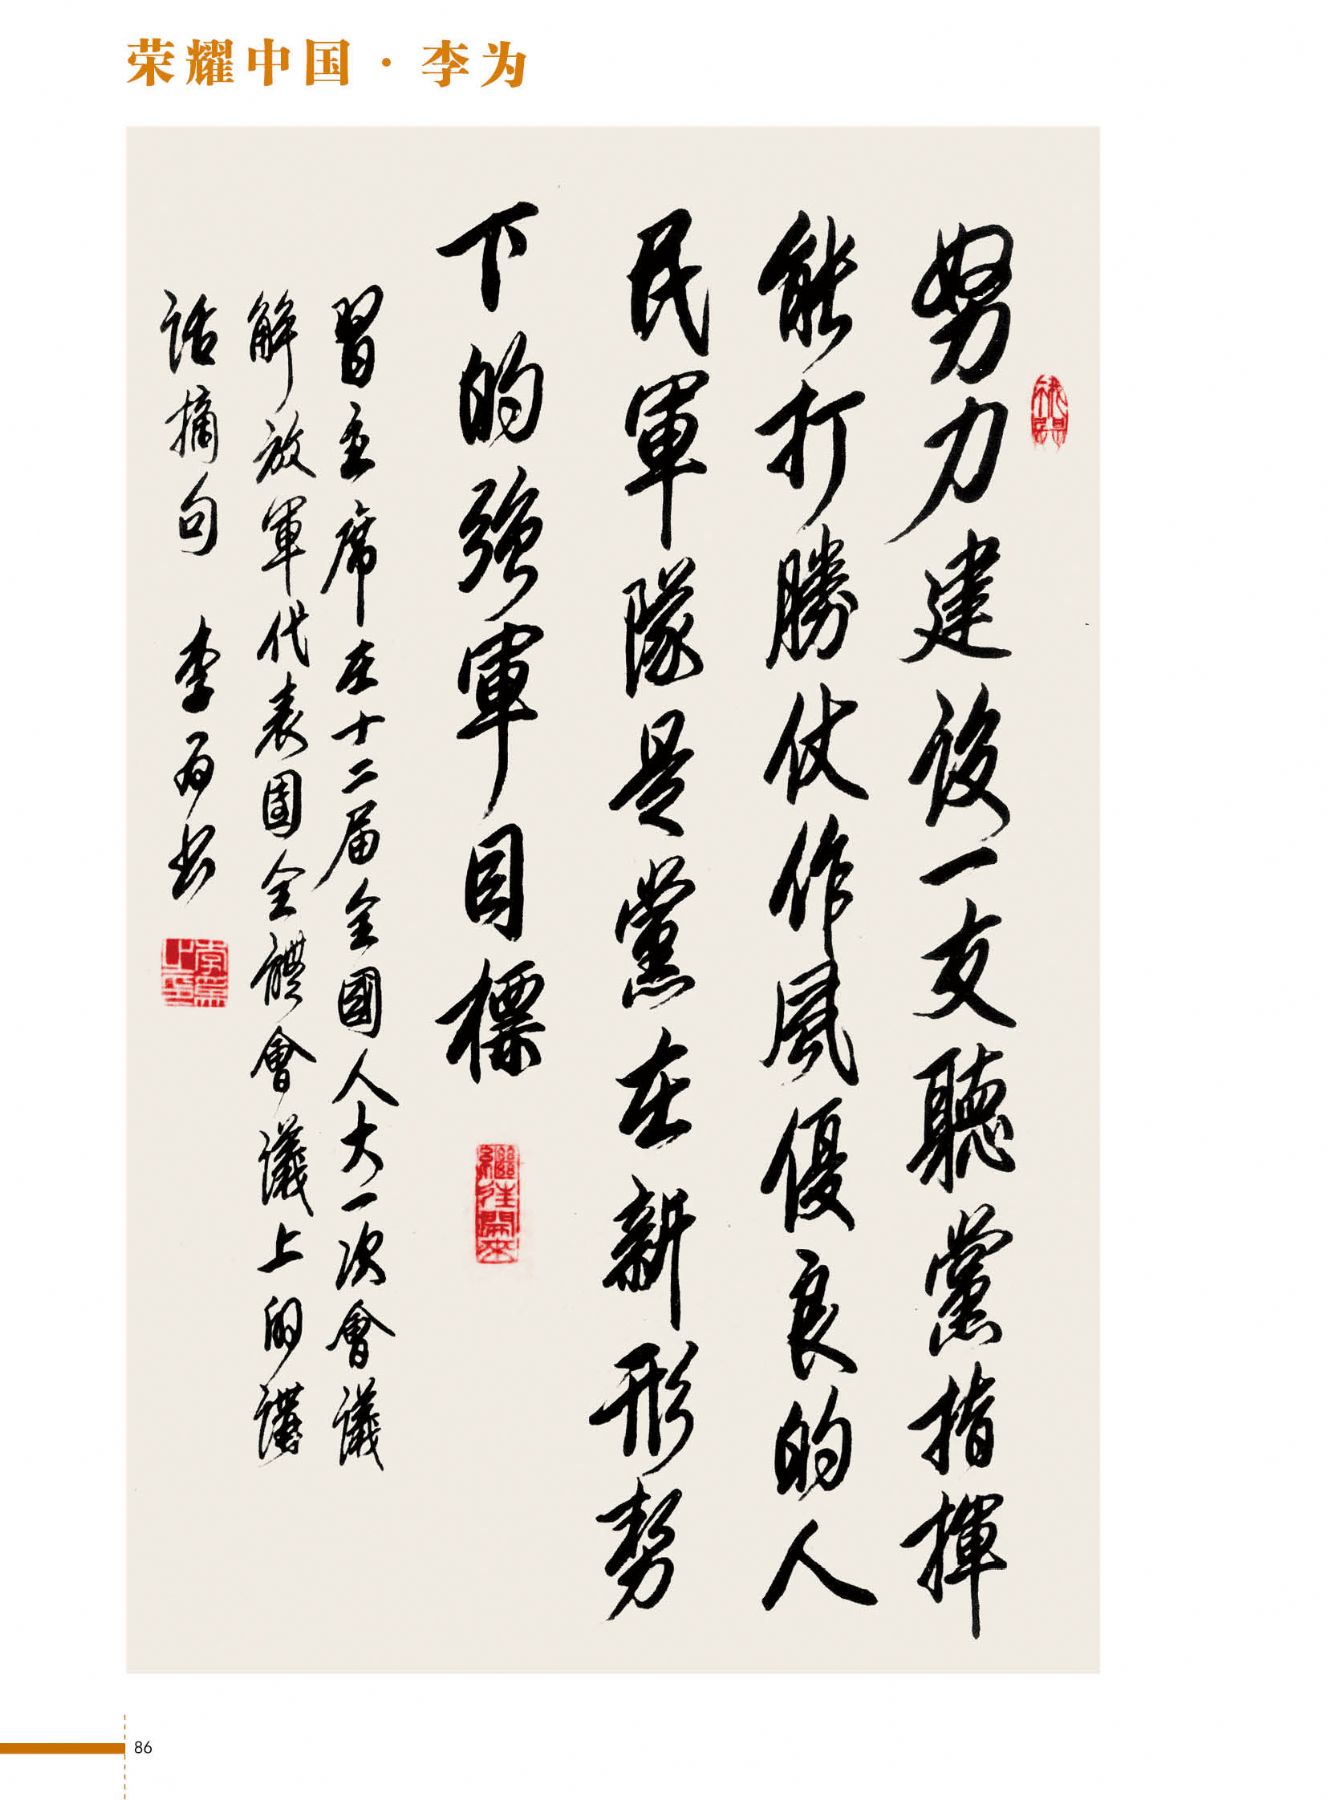 荣耀中国·李为
努力建设一支聽黨指揮
能打勝仗作風優良的人
民軍隊是黨在新形勢
下的強軍目標
習主席在十二届全國人大一次會議
解放軍代表團全體會議上的講
話摘句 李为书
繼往開來
李黨之印
86